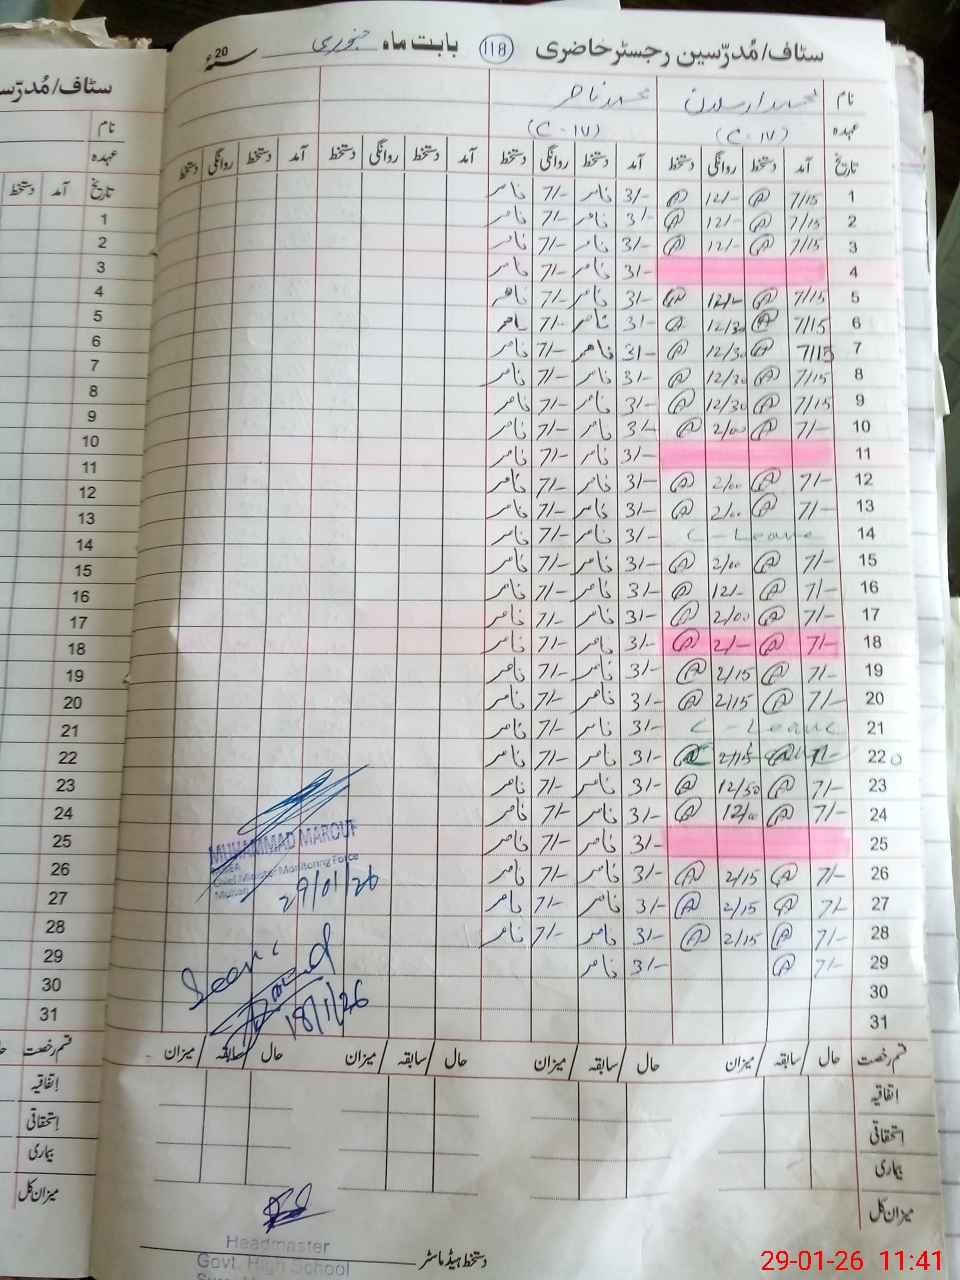 سٹاف/مُدرّسین رجسٹر حاضری 118 بابت ماہ جنوری سنہء 20
نام محمد ارسلان محمد ناصر
عہدہ (C-IV) (C-IV)
تاریخ آمد دستخط روانگی دستخط آمد دستخط روانگی دستخط آمد دستخط روانگی دستخط آمد دستخط روانگی دستخط
1 7/15 12/- 3/- ناصر 7/- ناصر
2 7/15 12/- 3/- ناصر 7/- ناصر
3 7/15 12/- 3/- ناصر 7/- ناصر
4 3/- ناصر 7/- ناصر
5 7/15 12/- 3/- ناصر 7/- ناصر
6 7/15 12/30 3/- ناصر 7/- ناصر
7 7/15 12/30 3/- ناصر 7/- ناصر
8 7/15 12/30 3/- ناصر 7/- ناصر
9 7/15 12/30 3/- ناصر 7/- ناصر
10 7/- 2/00 3/- ناصر 7/- ناصر
11 3/- ناصر 7/- ناصر
12 7/- 2/00 3/- ناصر 7/- ناصر
13 7/- 2/00 3/- ناصر 7/- ناصر
14 C-Leave 3/- ناصر 7/- ناصر
15 7/- 2/00 3/- ناصر 7/- ناصر
16 7/- 12/- 3/- ناصر 7/- ناصر
17 7/- 2/00 3/- ناصر 7/- ناصر
18 7/- 2/- 3/- ناصر 7/- ناصر
19 7/- 2/15 3/- ناصر 7/- ناصر
20 7/- 2/15 3/- ناصر 7/- ناصر
21 C-Leave 3/- ناصر 7/- ناصر
22 7/- 2/15 3/- ناصر 7/- ناصر
23 7/- 12/50 3/- ناصر 7/- ناصر
24 7/- 12/00 3/- ناصر 7/- ناصر
25 3/- ناصر 7/- ناصر
26 7/- 2/15 3/- ناصر 7/- ناصر
27 7/- 2/15 3/- ناصر 7/- ناصر
28 7/- 2/15 3/- ناصر 7/- ناصر
29 7/- 3/- ناصر
30
31
MUHAMMAD MAROUF
Chief Minister Monitoring Force
Multan
29/01/26
18/1/26
قسم رخصت حال سابقہ میزان حال سابقہ میزان حال سابقہ میزان حال سابقہ میزان
اتفاقیہ
استحقاقی
بیماری
میزان کل
دستخط ہیڈ ماسٹر
Headmaster
Govt. High School
سٹاف/مُدرّس
نام
عہدہ
تاریخ آمد دستخط
1
2
3
4
5
6
7
8
9
10
11
12
13
14
15
16
17
18
19
20
21
22
23
24
25
26
27
28
29
30
31
قسم رخصت
اتفاقیہ
استحقاقی
بیماری
میزان کل
29-01-26 11:41